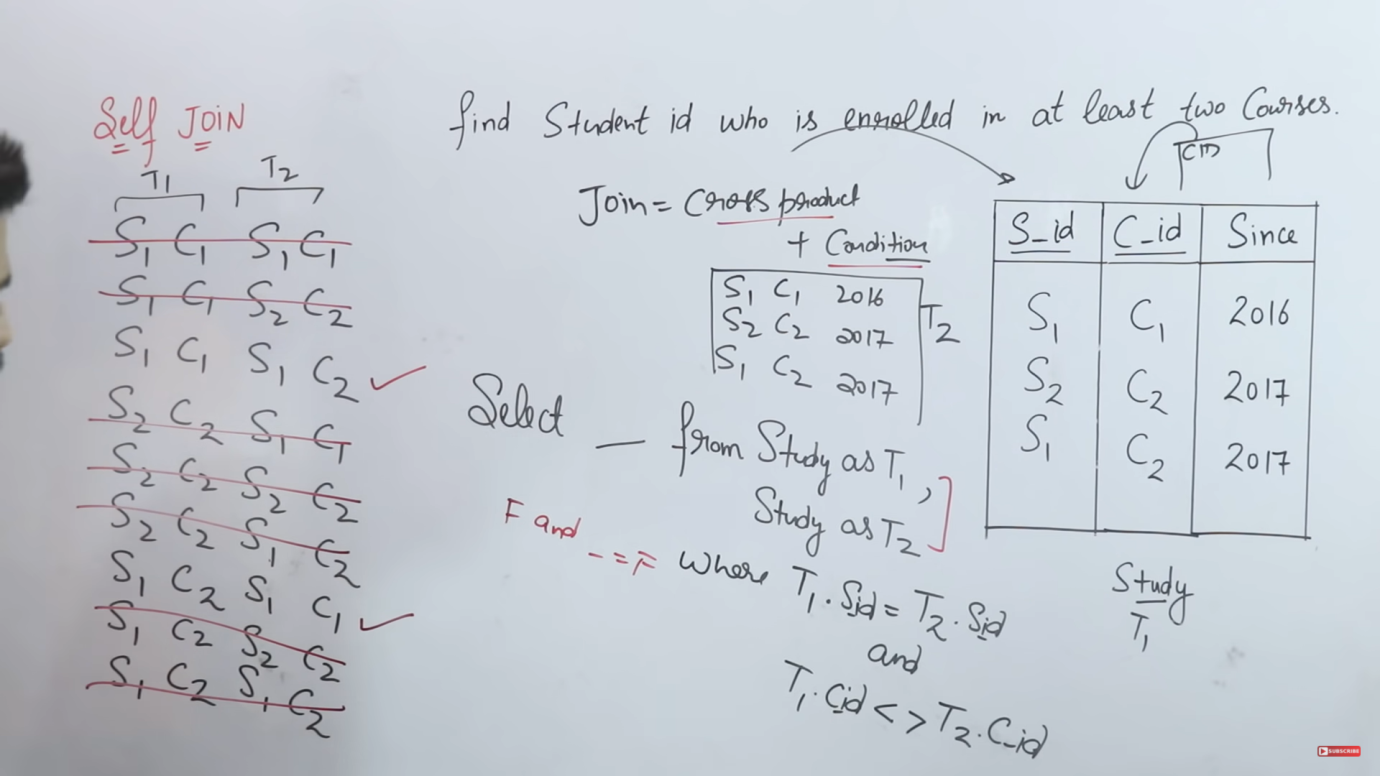 Self JOIN
T1 T2
S1 C1 S1 C1
S1 C1 S2 C2
S1 C1 S1 C2
S2 C2 S1 C1
S2 C2 S2 C2
S2 C2 S1 C2
S1 C2 S1 C1
S1 C2 S2 C2
S1 C2 S1 C2
find Student id who is enrolled in at least two Courses.
Join = Cross product
+ Condition
S1 C1 2016
S2 C2 2017
S1 C2 2017
T2
Select — from Study as T1,
Study as T2
F and - = F
where T1.Sid = T2.Sid
and
T1.Cid <> T2.C_id
S_id C_id Since
S1 C1 2016
S2 C2 2017
S1 C2 2017
Study
T1
SUBSCRIBE